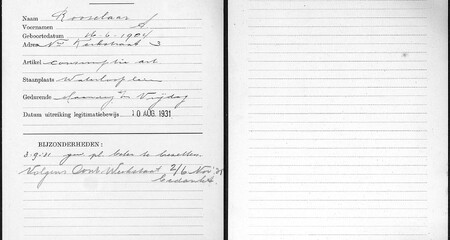 Naam Rooselaar
Voornamen A
Geboortedatum 16-6-1904
Adres Nwe Kerkstraat 3
Artikel consumptie art
Staanplaats Waterlooplein
Gedurende Maandag t/m Vrijdag
Datum uitreiking legitimatiebewijs 10 AUG. 1931
BIJZONDERHEDEN:
3-9-31 geen pl. te bezetten
Volgens Contr. 2/6 Nov '31